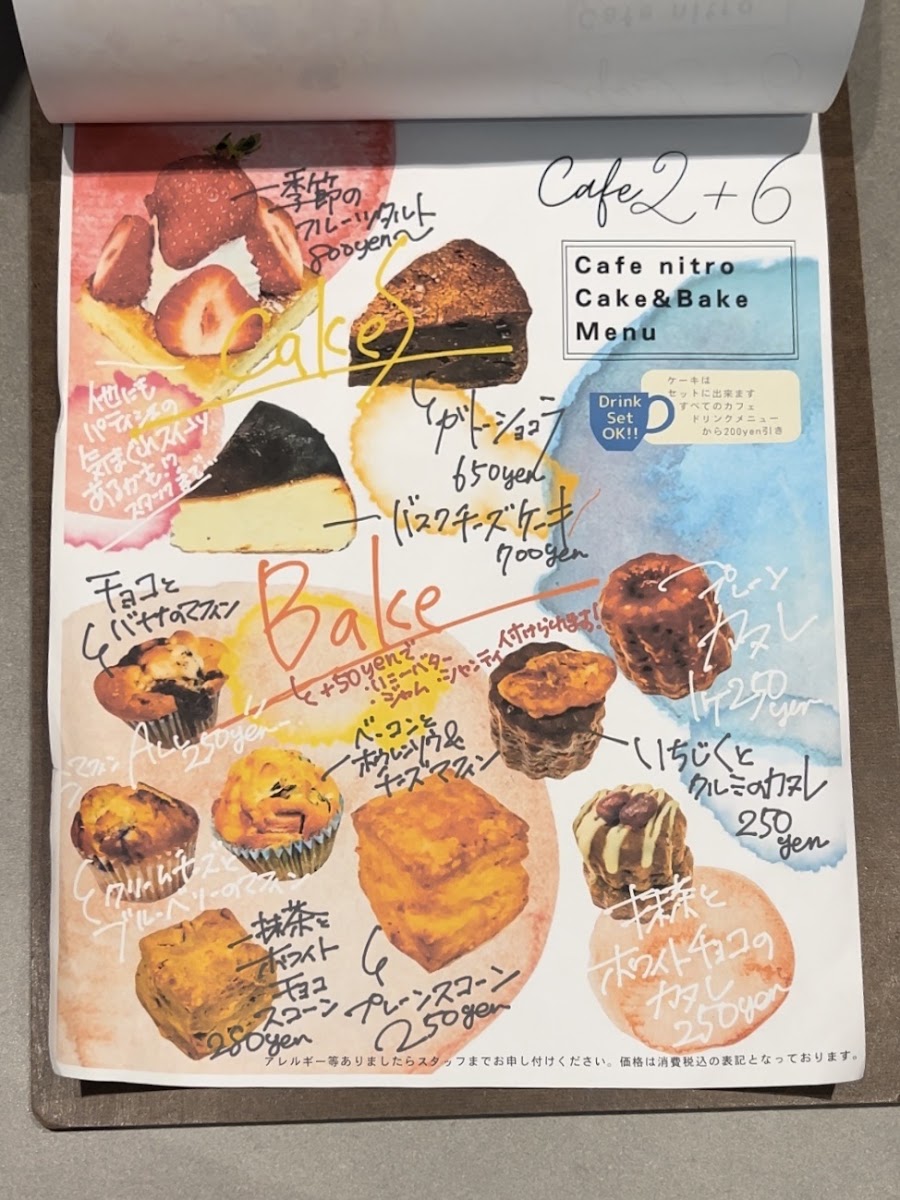 Cafe 2+6
Cafe nitro
Cake&Bake
Menu
Drink
Set
OK!!
ケーキは
セットに出来ます
すべてのカフェ
ドリンクメニュー
から200yen引き
季節の
フルーツタルト
800yen〜
Cakes
ガトーショコラ
650yen
他にも
パティシエの
気まぐれスイーツ
あるかも!?
スタッフまで
バスクチーズケーキ
700yen
Bake
+50yenで
ハニーバター
ジャム
シャンティ
付けられます!
チョコと
バナナのマフィン
ALL
250yen
ベーコンと
ホウレンソウ&
チーズマフィン
クリームチーズと
ブルーベリーのマフィン
抹茶と
ホワイト
チョコ
スコーン
280yen
プレーンスコーン
250yen
プレーン
カヌレ
1ケ250
yen
いちじくと
クルミのカヌレ
250
yen
抹茶と
ホワイトチョコの
カヌレ
250yen
アレルギー等ありましたらスタッフまでお申し付けください。価格は消費税込の表記となっております。